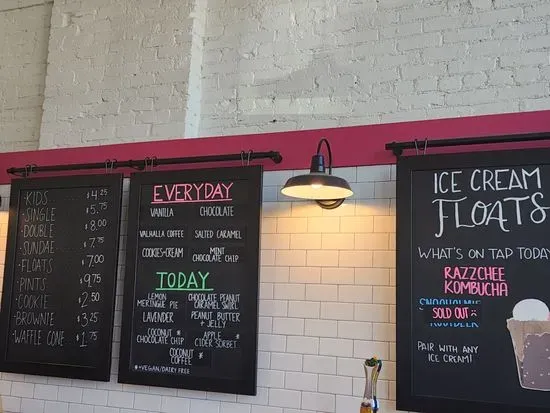 KIDS $4.25
SINGLE $5.75
DOUBLE $8.00
SUNDAE $7.75
FLOATS $7.00
PINTS $9.75
COOKIE $2.50
BROWNIE $3.25
WAFFLE CONE $1.75
EVERYDAY
VANILLA CHOCOLATE
VALHALLA COFFEE SALTED CARAMEL
COOKIES+CREAM MINT CHOCOLATE CHIP
TODAY
LEMON MERINGUE PIE CHOCOLATE PEANUT CARAMEL SWIRL
LAVENDER PEANUT BUTTER + JELLY
COCONUT * CHOCOLATE CHIP APPLE * CIDER SORBET
COCONUT * COFFEE
*=VEGAN/DAIRY FREE
ICE CREAM
FLOATS
WHAT'S ON TAP TODAY
RAZZCHEE
KOMBUCHA
SOLD OUT
PAIR WITH ANY
ICE CREAM!